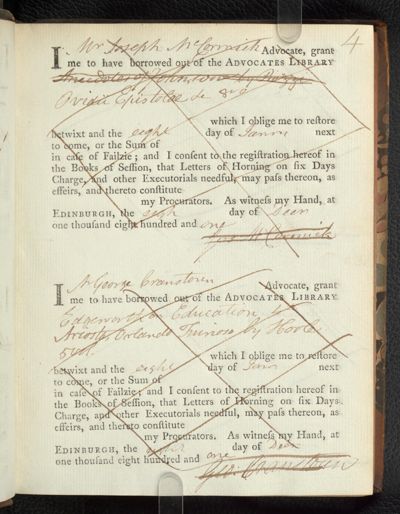 4
I Mr Joseph McCormick Advocate, grant
me to have borrowed out of the ADVOCATES LIBRARY
Anecdotes of by
Ovidii Epistolae de &c
which I oblige me to reſtore
betwixt and the eight day of Janry next
to come, or the Sum of
in caſe of Failzie; and I conſent to the regiſtration hereof in
the Books of Seſſion, that Letters of Horning on ſix Days
Charge, and other Executorials needful, may paſs thereon, as
effeirs, and thereto conſtitute
my Procurators. As witneſs my Hand, at
EDINBURGH, the eigh day of Decm
one thouſand eight hundred and one
Jos. McCormick
I Mr George Cranstoun Advocate, grant
me to have borrowed out of the ADVOCATES LIBRARY
Edgeworth on Education
Ariosto's Orlando Furioso by Hoole
5 vol.
which I oblige me to reſtore
betwixt and the eight day of Janr next
to come, or the Sum of
in caſe of Failzie; and I conſent to the regiſtration hereof in
the Books of Seſſion, that Letters of Horning on ſix Days
Charge, and other Executorials needful, may paſs thereon, as
effeirs, and thereto conſtitute
my Procurators. As witneſs my Hand, at
EDINBURGH, the eight day of Decr
one thouſand eight hundred and one
Geo. Cranstoun